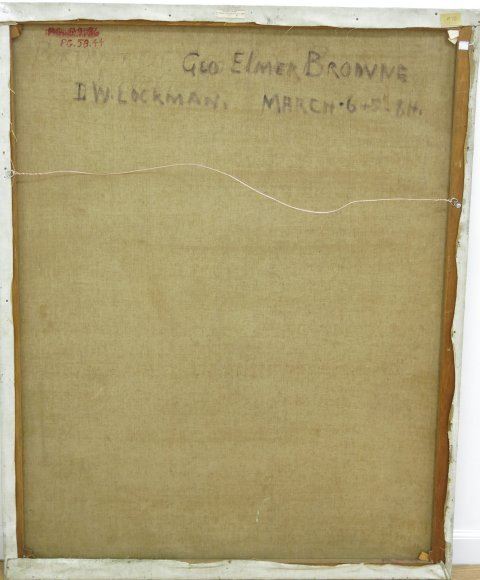 PG.58.44
GEO ELMER BROWNE
D.W. LOCKMAN. MARCH.6+5